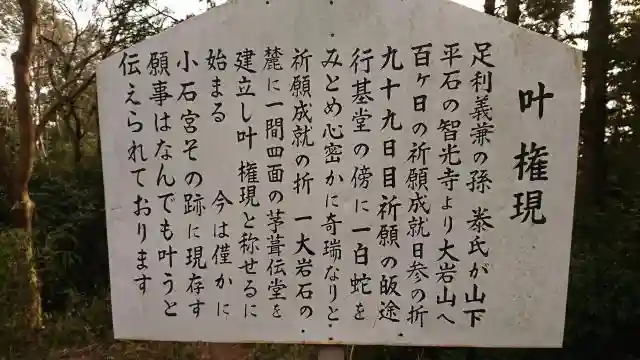 叶権現
足利義兼の孫 泰氏が山下
平石の智光寺より大岩山へ
百ヶ日の祈願成就日参の折
九十九日目祈願の皈途
行基堂の傍に一白蛇を
みとめ心密かに奇瑞なりと
祈願成就の折 一大岩石の
麓に一間四面の茅葺伝堂を
建立し叶 権現と称せるに
始まる 今は僅かに
小石宮その跡に現存す
願事はなんでも叶うと
伝えられております